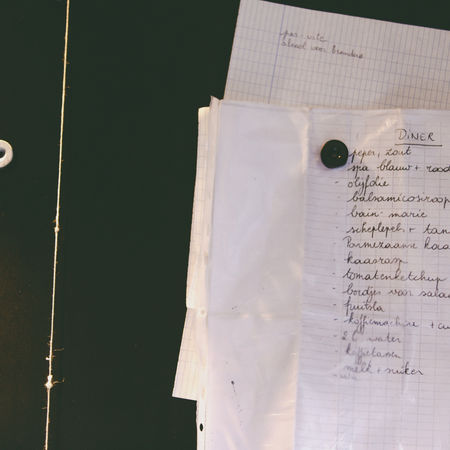 alcool voor branders
DINER
- peper, zout
- spa blauw + rood
- olijfolie
- balsamicosiroop
- bain-marie
- scheplepels + tan
- Parmezaanse kaa
- kaasrasp
- tomatenketchup
- bordjes voor sala
- fruitsla
- koffiemachine +
- 2 L water
- koffietassen
- melk + suiker